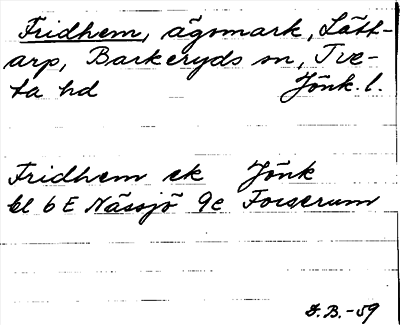 Fridhem, ägomark, Lätt-
arp, Barkeryds sn, Tve-
ta hd Jönk. l.
Fridhem ek Jönk
bl 6 E Nässjö 9e Forserum
J.B.-59